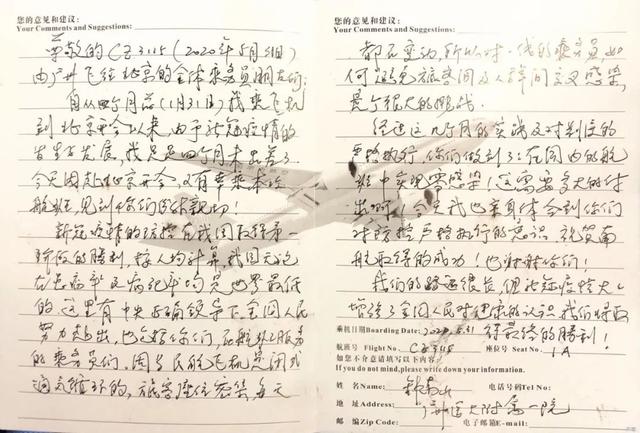 您的意见和建议：
Your Comments and Suggestions:
尊敬的CZ3115（2020年5月31日）
由广州飞往北京的全体乘务员朋友们：
自从四个月前（1月31日）我乘飞机
到北京开会以来，由于新冠疫情的
发生发展，我足足四个月未出差了
今天因赴北京开会，又有幸乘本次
航班，见到你们很亲切！
新冠疫情的防控在我国取得第一
阶段的胜利，按人均计算我国无论
在患病率及病死率均是世界最低
的，这里有中央正确领导下，全国人民
努力付出，也包括你们，在航班上服务
的乘务员们。因为民航飞机是闭式
通气循环的，旅客座位密集，每天
您的意见和建议：
Your Comments and Suggestions:
都在变动，所以对一线的乘务员，如
何避免旅客间及人群间交叉感染，
是个很大的挑战。
经过这几个月的实践及对制度的
严格执行，你们做到了：在国内的航
班中实现零感染！这需要多大的付
出啊！今天我也亲身体会到你们
对防控严格执行的意识，祝贺南
航取得的成功！也谢谢你们！
我们的路还很长，但新冠疫情大大
增强了全国人民对健康的认识，我们将取
得最终的胜利！
乘机日期Boarding Date: 2020.5.31
航班号 Flight No: CZ3115 座位号 Seat No. 1A
如您不介意请填写以下内容，
If you do not mind, please write down your information.
姓 名 Name: 钟南山 电话号码Tel No:
地 址 Address: 广州医大附属一院
邮 编Zip Code: 电子邮箱E-mail: